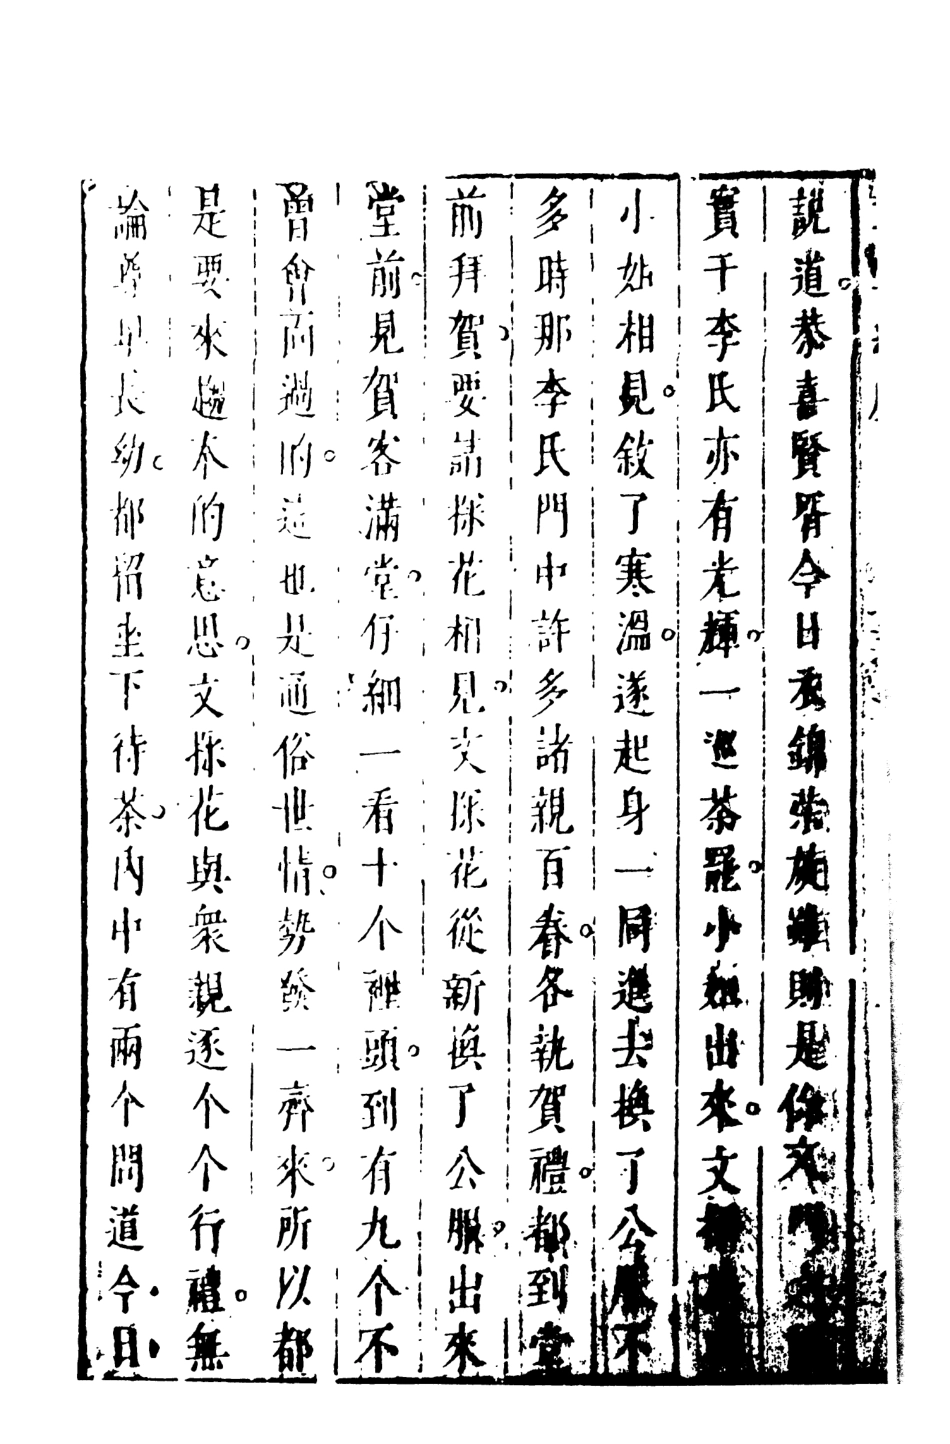 說道。恭喜賢壻今日衣錦榮旋雖則是你文門之
實于李氏亦有光輝。一廵茶罷。小姐出來。文
小姐相見。敘了寒溫。遂起身一同進去換了公服不
多時那李氏門中許多諸親百眷。各執賀禮。都到堂
前拜賀。要請探花相見。文探花從新換了公服。出來
堂前。見賀客滿堂。仔細一看十个裡頭。到有九个不
曾會面過的。這也是通俗世情。勢發一齊來。所以都
是要來趨奉的意思。文探花與衆親逐个个行禮。無
論尊卑長幼。都留坐下待茶。內中有兩个問道今日